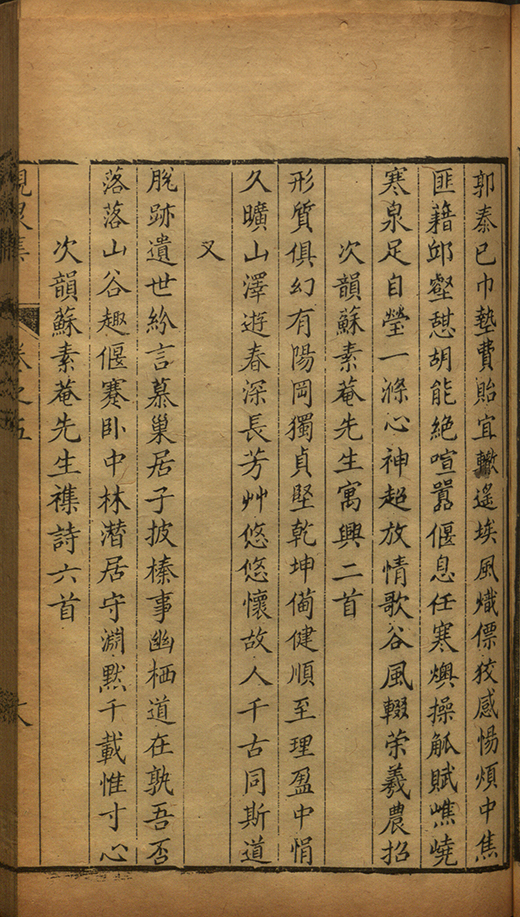 郭泰已巾墊費貽宜轍遙埃風熾僄狡感惕煩中焦
匪藉邱壑憇胡能絶喧囂偃息任寒燠操觚賦嶕嶢
寒泉足自瑩一滌心神超放情歌谷風輟荣羲農招
次韻蘇素菴先生寓興二首
形質俱幻有陽岡獨貞堅乾坤僃健順至理盈中悁
久曠山澤遊春深長芳艸悠悠懷故人千古同斯道
又
脫跡遺世紛言慕巢居子披榛事幽栖道在孰吾否
落落山谷趣偃蹇卧中林潛居守淵默千載惟寸心
次韻蘇素菴先生襍詩六首
卷之五